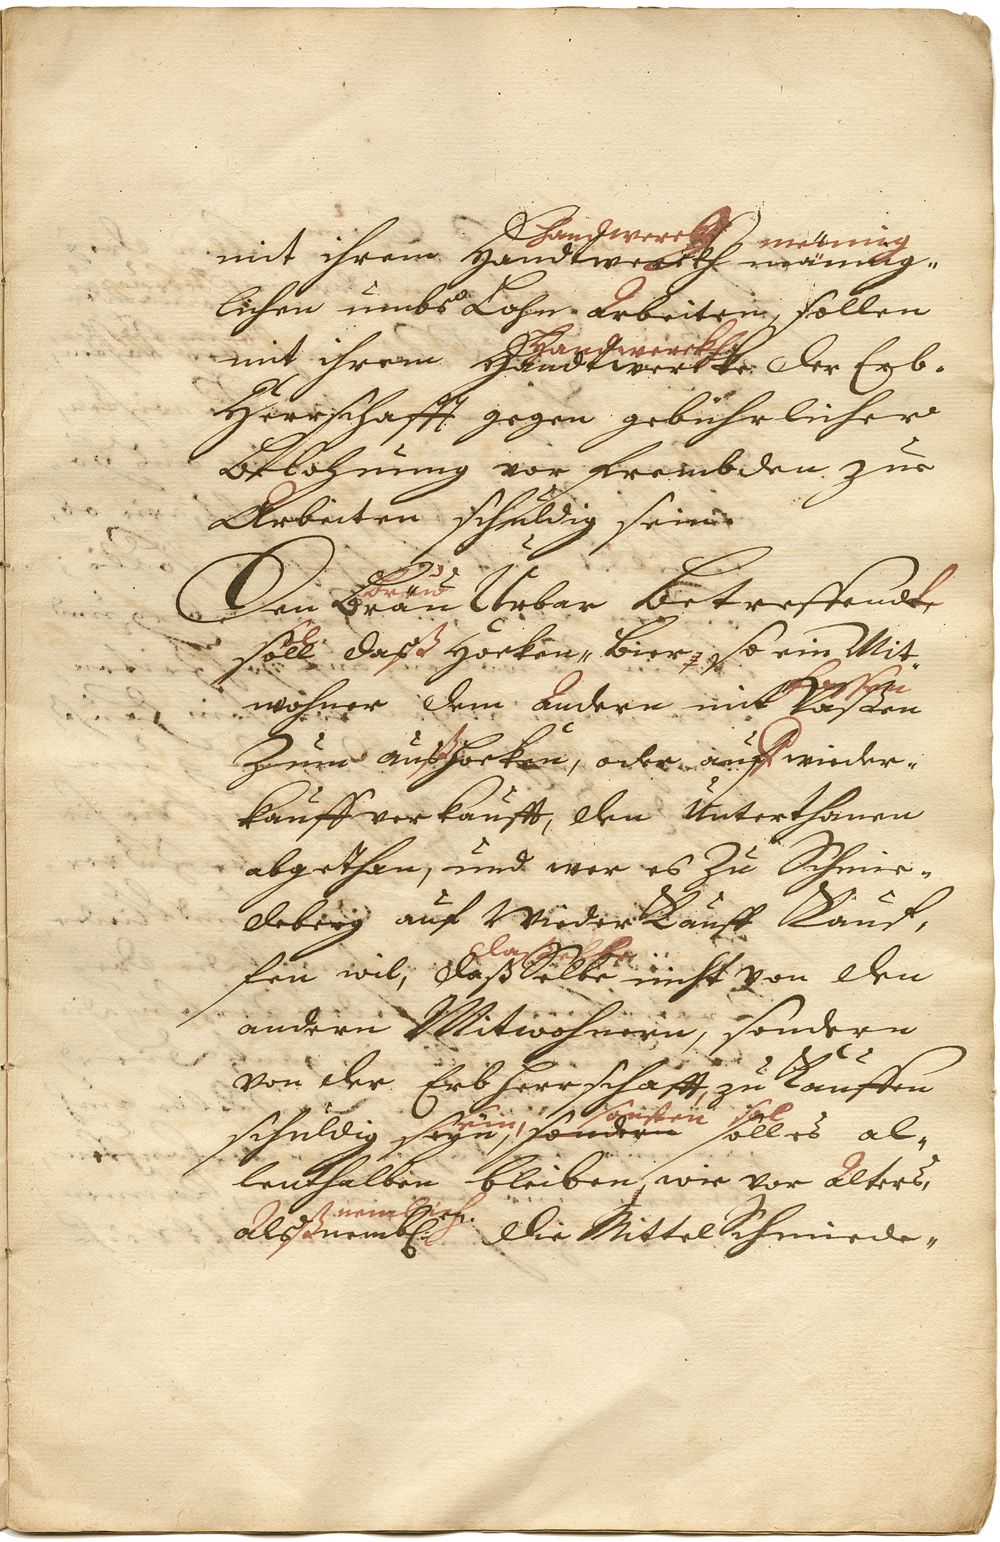 Handwerckh männig
mit ihrem Handtwerckh männig-
lichen umbs Lohn Arbeiten, sollen
Handwerckh
mit ihrem Handtwerckhe der Erb-
Herrschafft gegen gebührlicher
Belohnung vor frembden zue
Arbeiten schuldig sein.
Bräw
Den Bräu Urbar Betreffende
soll daß Hocken- Bier, so ein Mit-
Fassen
wohner dem Andern mit Vaßen
Zum außhocken, oder auff wieder-
kauff verkaufft, den Unterthanen
abgethan, und wer es Zu Schmie-
deberg auf Wieder Kauff Kauf-
dasselbe
fen wil, daß Selbe nicht von den
andern Mitwohnern, sondern
von der Erbherrschafft, zu Kauffen
sein, sonsten sol
schuldig seyn, sondern soll es al-
lenthalben bleiben, wie vor Alters,
nemblich
Alß nembl: die Mittel Schmiede-